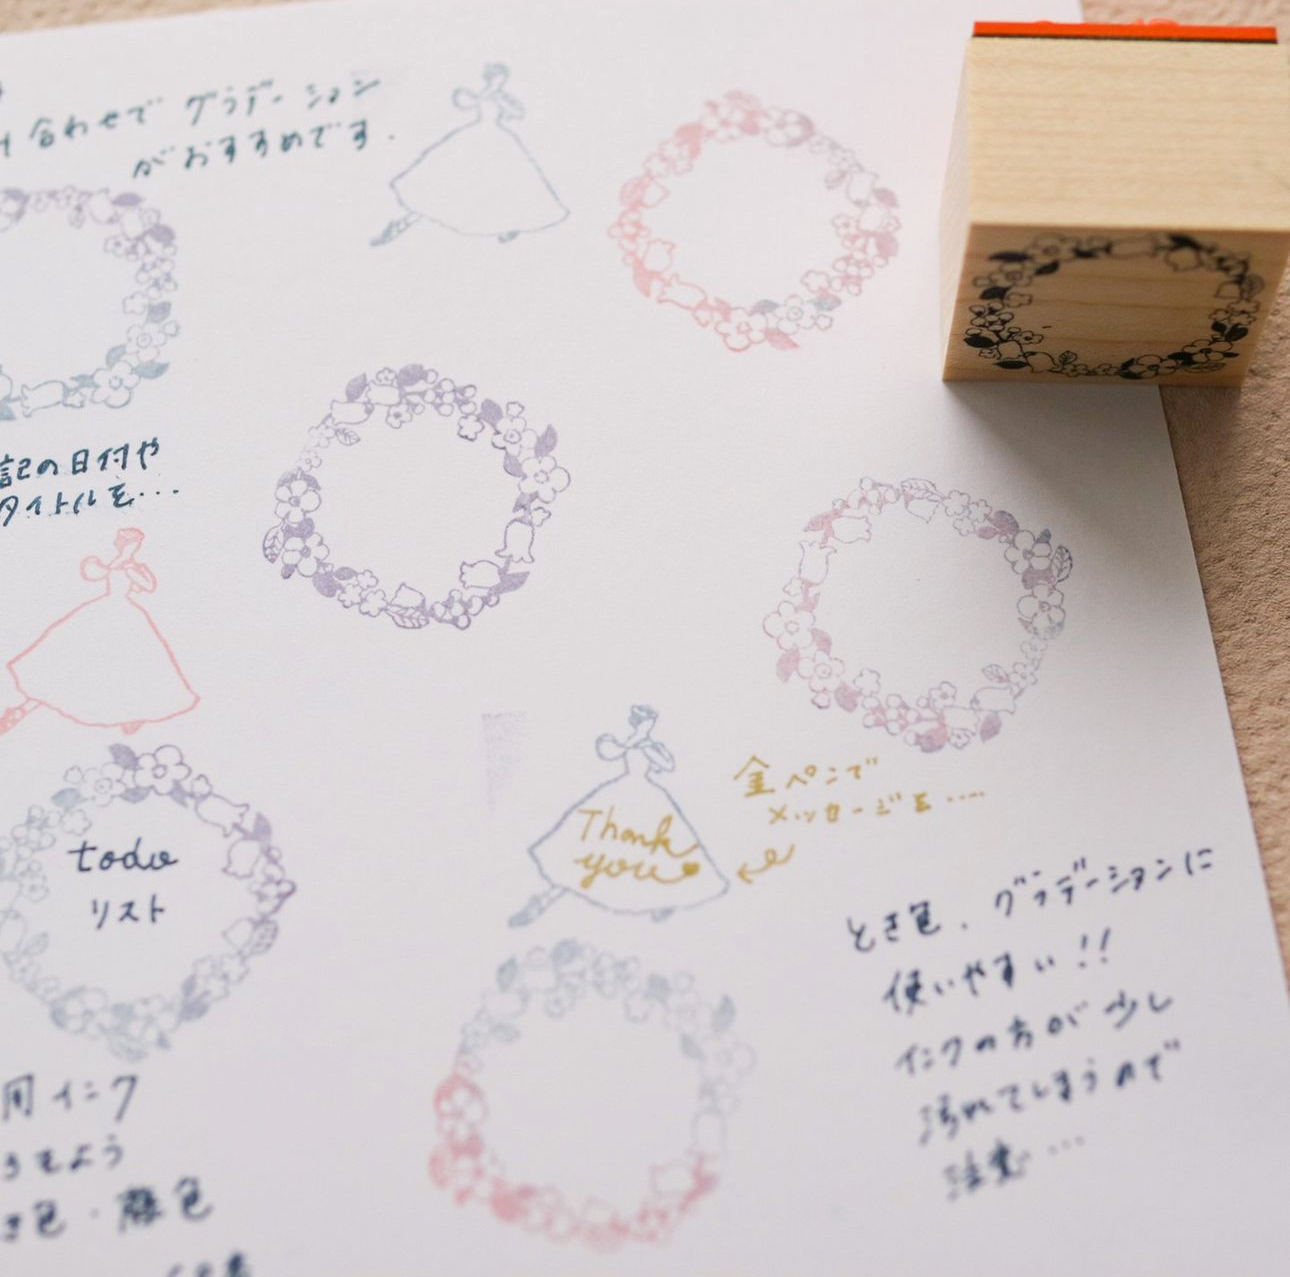 合わせで グラデーション
がおすすめです.
記の日付や
タイトルを…
todo
リスト
Thank
you
金ペンで
メッセージを……
とき色、グラデーションに
使いやすい!!
インクの方が少し
汚れてしまうので
注意…
用インク
きをよう
き色・藤色